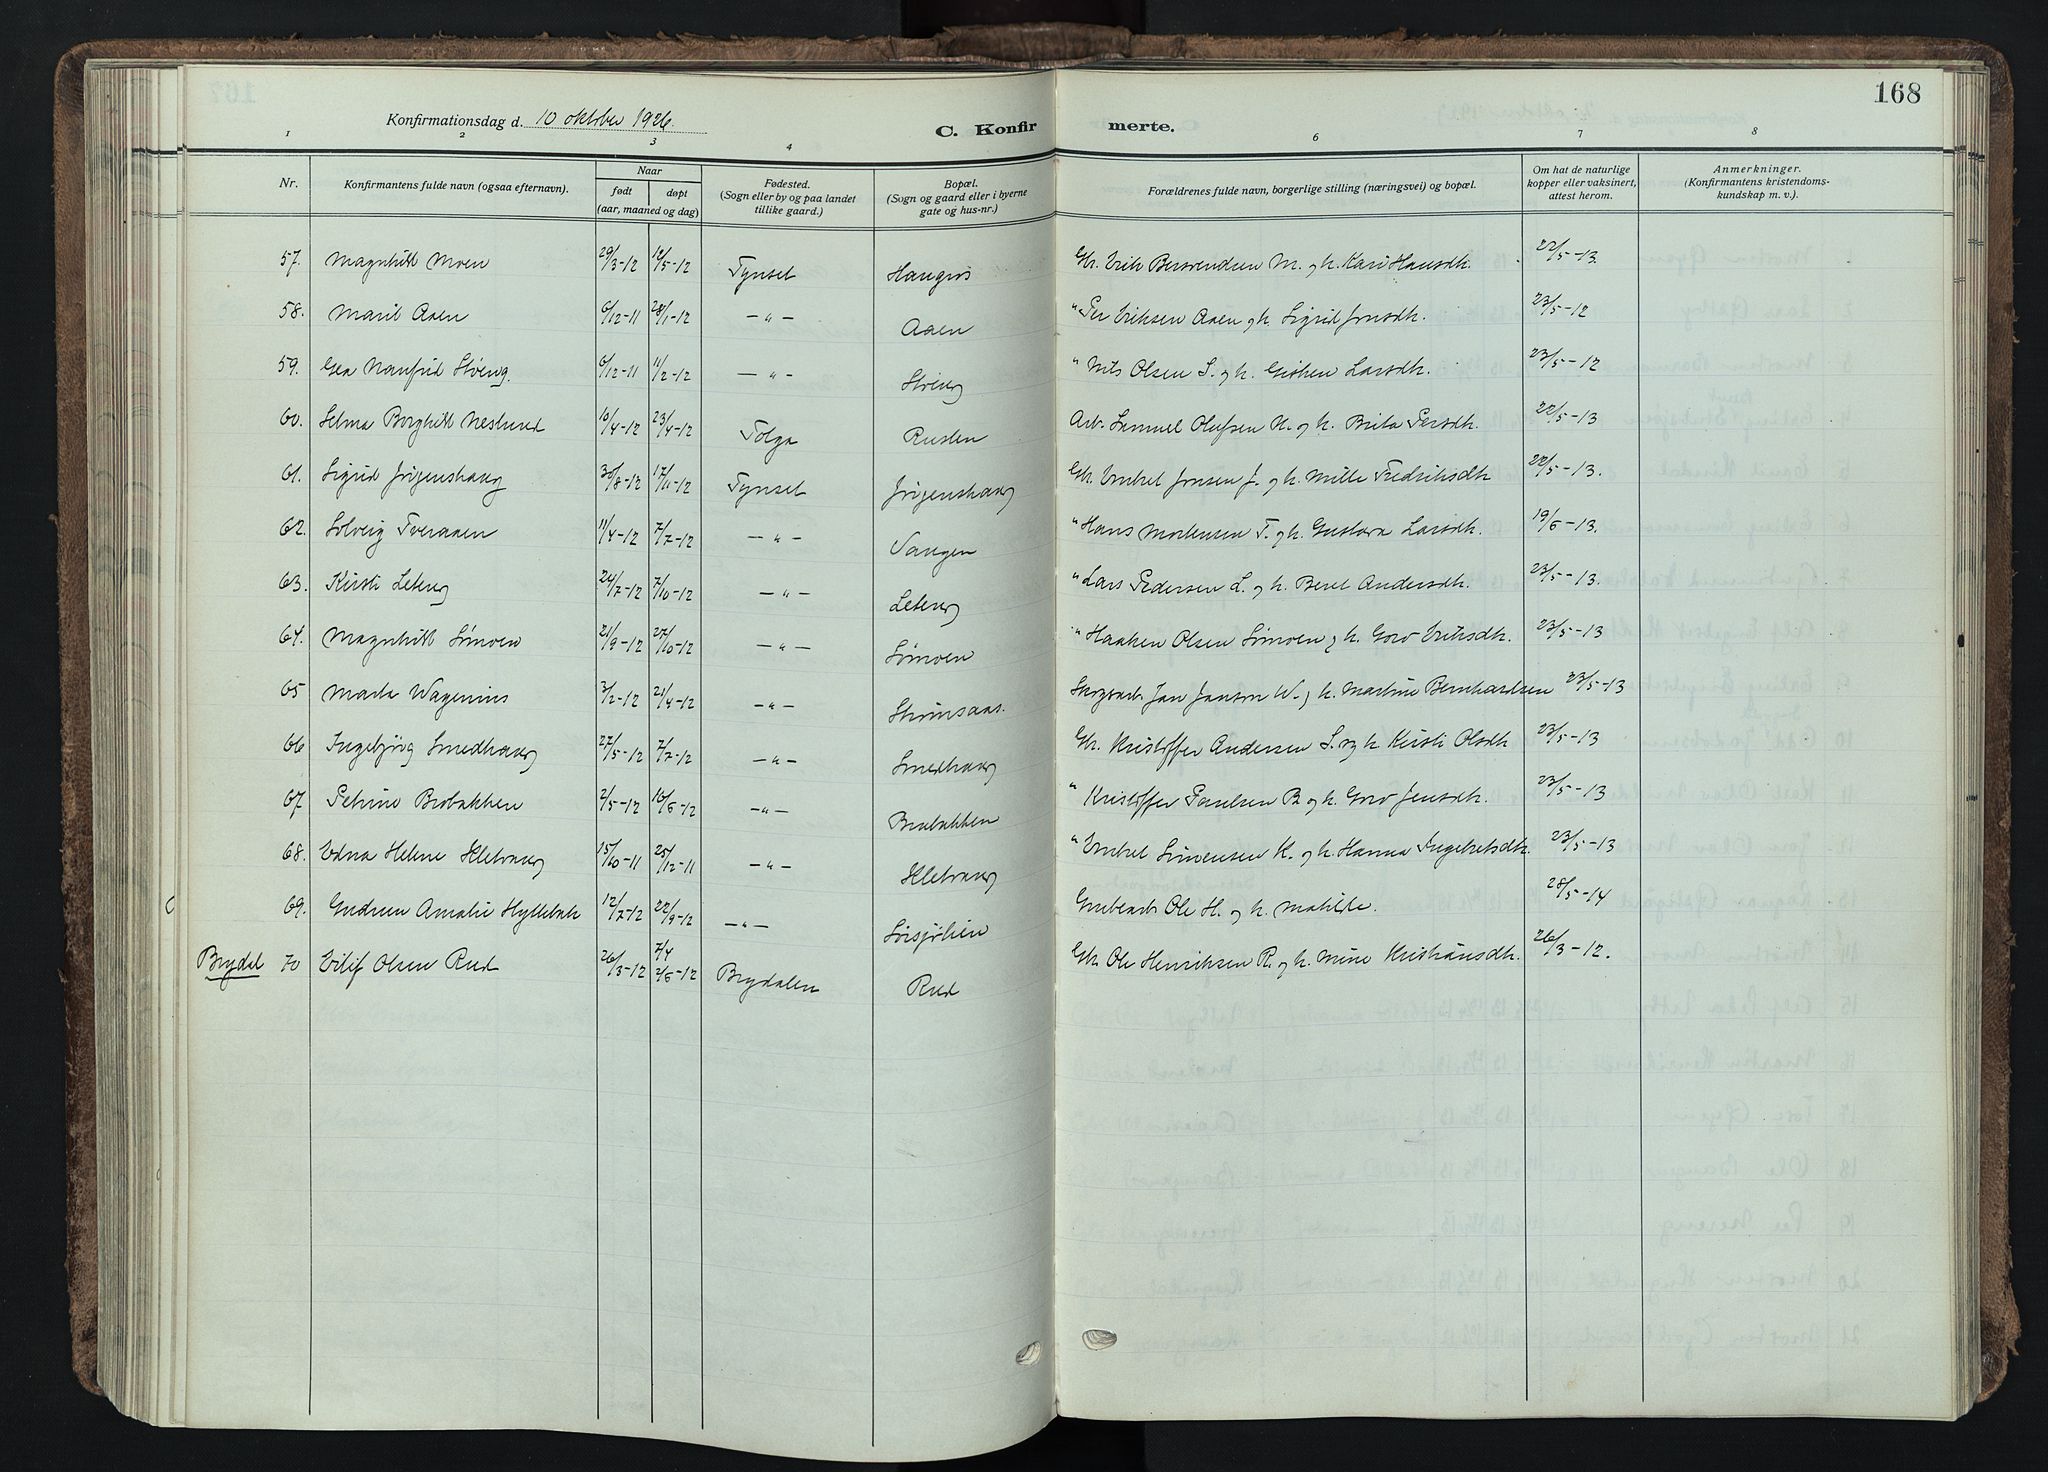 168
Konfirmationsdag d. 10 oktober 1926.
C. Konfirmerte.
1 2 3 4 6 7 8
Nr.
Konfirmantens fulde navn (ogsaa efternavn).
Naar
født døpt
(aar, maaned og dag)
Fødested.
(Sogn eller by og paa landet
tillike gaard.)
Bopæl.
(Sogn og gaard eller i byerne
gate og hus-nr.)
Forældrenes fulde navn, borgerlige stilling (næringsvei) og bopæl.
Om hat de naturlige
kopper eller vaksinert,
attest herom.
Anmerkninger.
(Konfirmantens kristendoms-
kundskap m. v.).
57. Magnhild Moen 29/3-12 /5-12 Tynset Haugros Gbr. Erik Berntsen M. og h. Kari Hansdtr. 22/5-13.
58. Marit Aaen 6/12-11 28/1-12 -"- Aaen " Per Eriksen Aaen og h. Sigrid Jonsdtr. 23/5-12
59. Gea Nanfrid Støeng. 6/12-11 11/2-12 -"- Støeng " Nils Olsen S. og h. Larsdtr. 23/5-12
60. Selma Borghild Neslund 10/4-12 23/4-12 Tolga Rusten Arb. Samuel Olufsen N. og h. Brita Persdtr. 22/5-13
61. Sigrid Jørgenshaug 30/8-12 17/11-12 Tynset Jørgenshaug Gbr. Embret Jonsen J. og h. Mille Fredriksdtr 22/5-13.
62. Solveig Tveraaen 11/4-12 7/7-12 -"- Vangen " Hans Mortensen T. og h. Gustava Larsdtr. 19/6-13.
63. Kirsti Leteng 24/7-12 7/10-12 -"- Leteng " Lars Pedersen L. og h. Beret Andersdtr. 23/5-13.
64. Magnhild Sømoen 21/9-12 27/10-12 -"- Sømoen " Haaken Olsen Sømoen og h. Goro Eriksdtr. 23/5-13
65 Marta Wagenius 3/2-12 21/4-12 -"- Strømsaas. Skogsarb. Jan Janson W. og h. Martine Bernhardsen 23/5-13
66 Ingebjørg Smedhaug 27/5-12 7/7-12 -"- Smedhaug Gbr. Kristoffer Andersen S. og h Kirsti Olsdtr 23/5-13
67. Petrine Brobakken 2/5-12 16/6-12 -"- Brobakken " Kristoffer Paulsen B. og h. Goro Jensdtr. 23/5-13
68. Edna Helene Kletvang 15/10-11 25/12-11 -"- Kletvang " Embret Simensen K. og h. Hanna Ingebretsdtr. 23/5-13
69. Gudrun Amalie Hyllebak 12/7-12 22/9-12 -"- Grubearb. Ole H. og h. Matilde. 28/5-14
Brydal 70 Eilif Olsen Rud 26/3-12 7/4 2/6-12 Brydalen Rud Gbr. Ole Henriksen R. og h. Mine Kristiansdtr. 26/3-12.